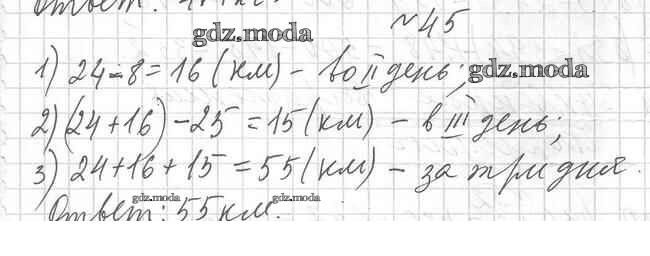 Ответ:
№45
gdz.moda
1) 24-8=16 (км) - во II день;
gdz.moda
2) (24+16)-25=15 (км) - в III день;
3) 24+16+15=55 (км) - за три дня.
gdz.moda gdz.moda
Ответ: 55 км.